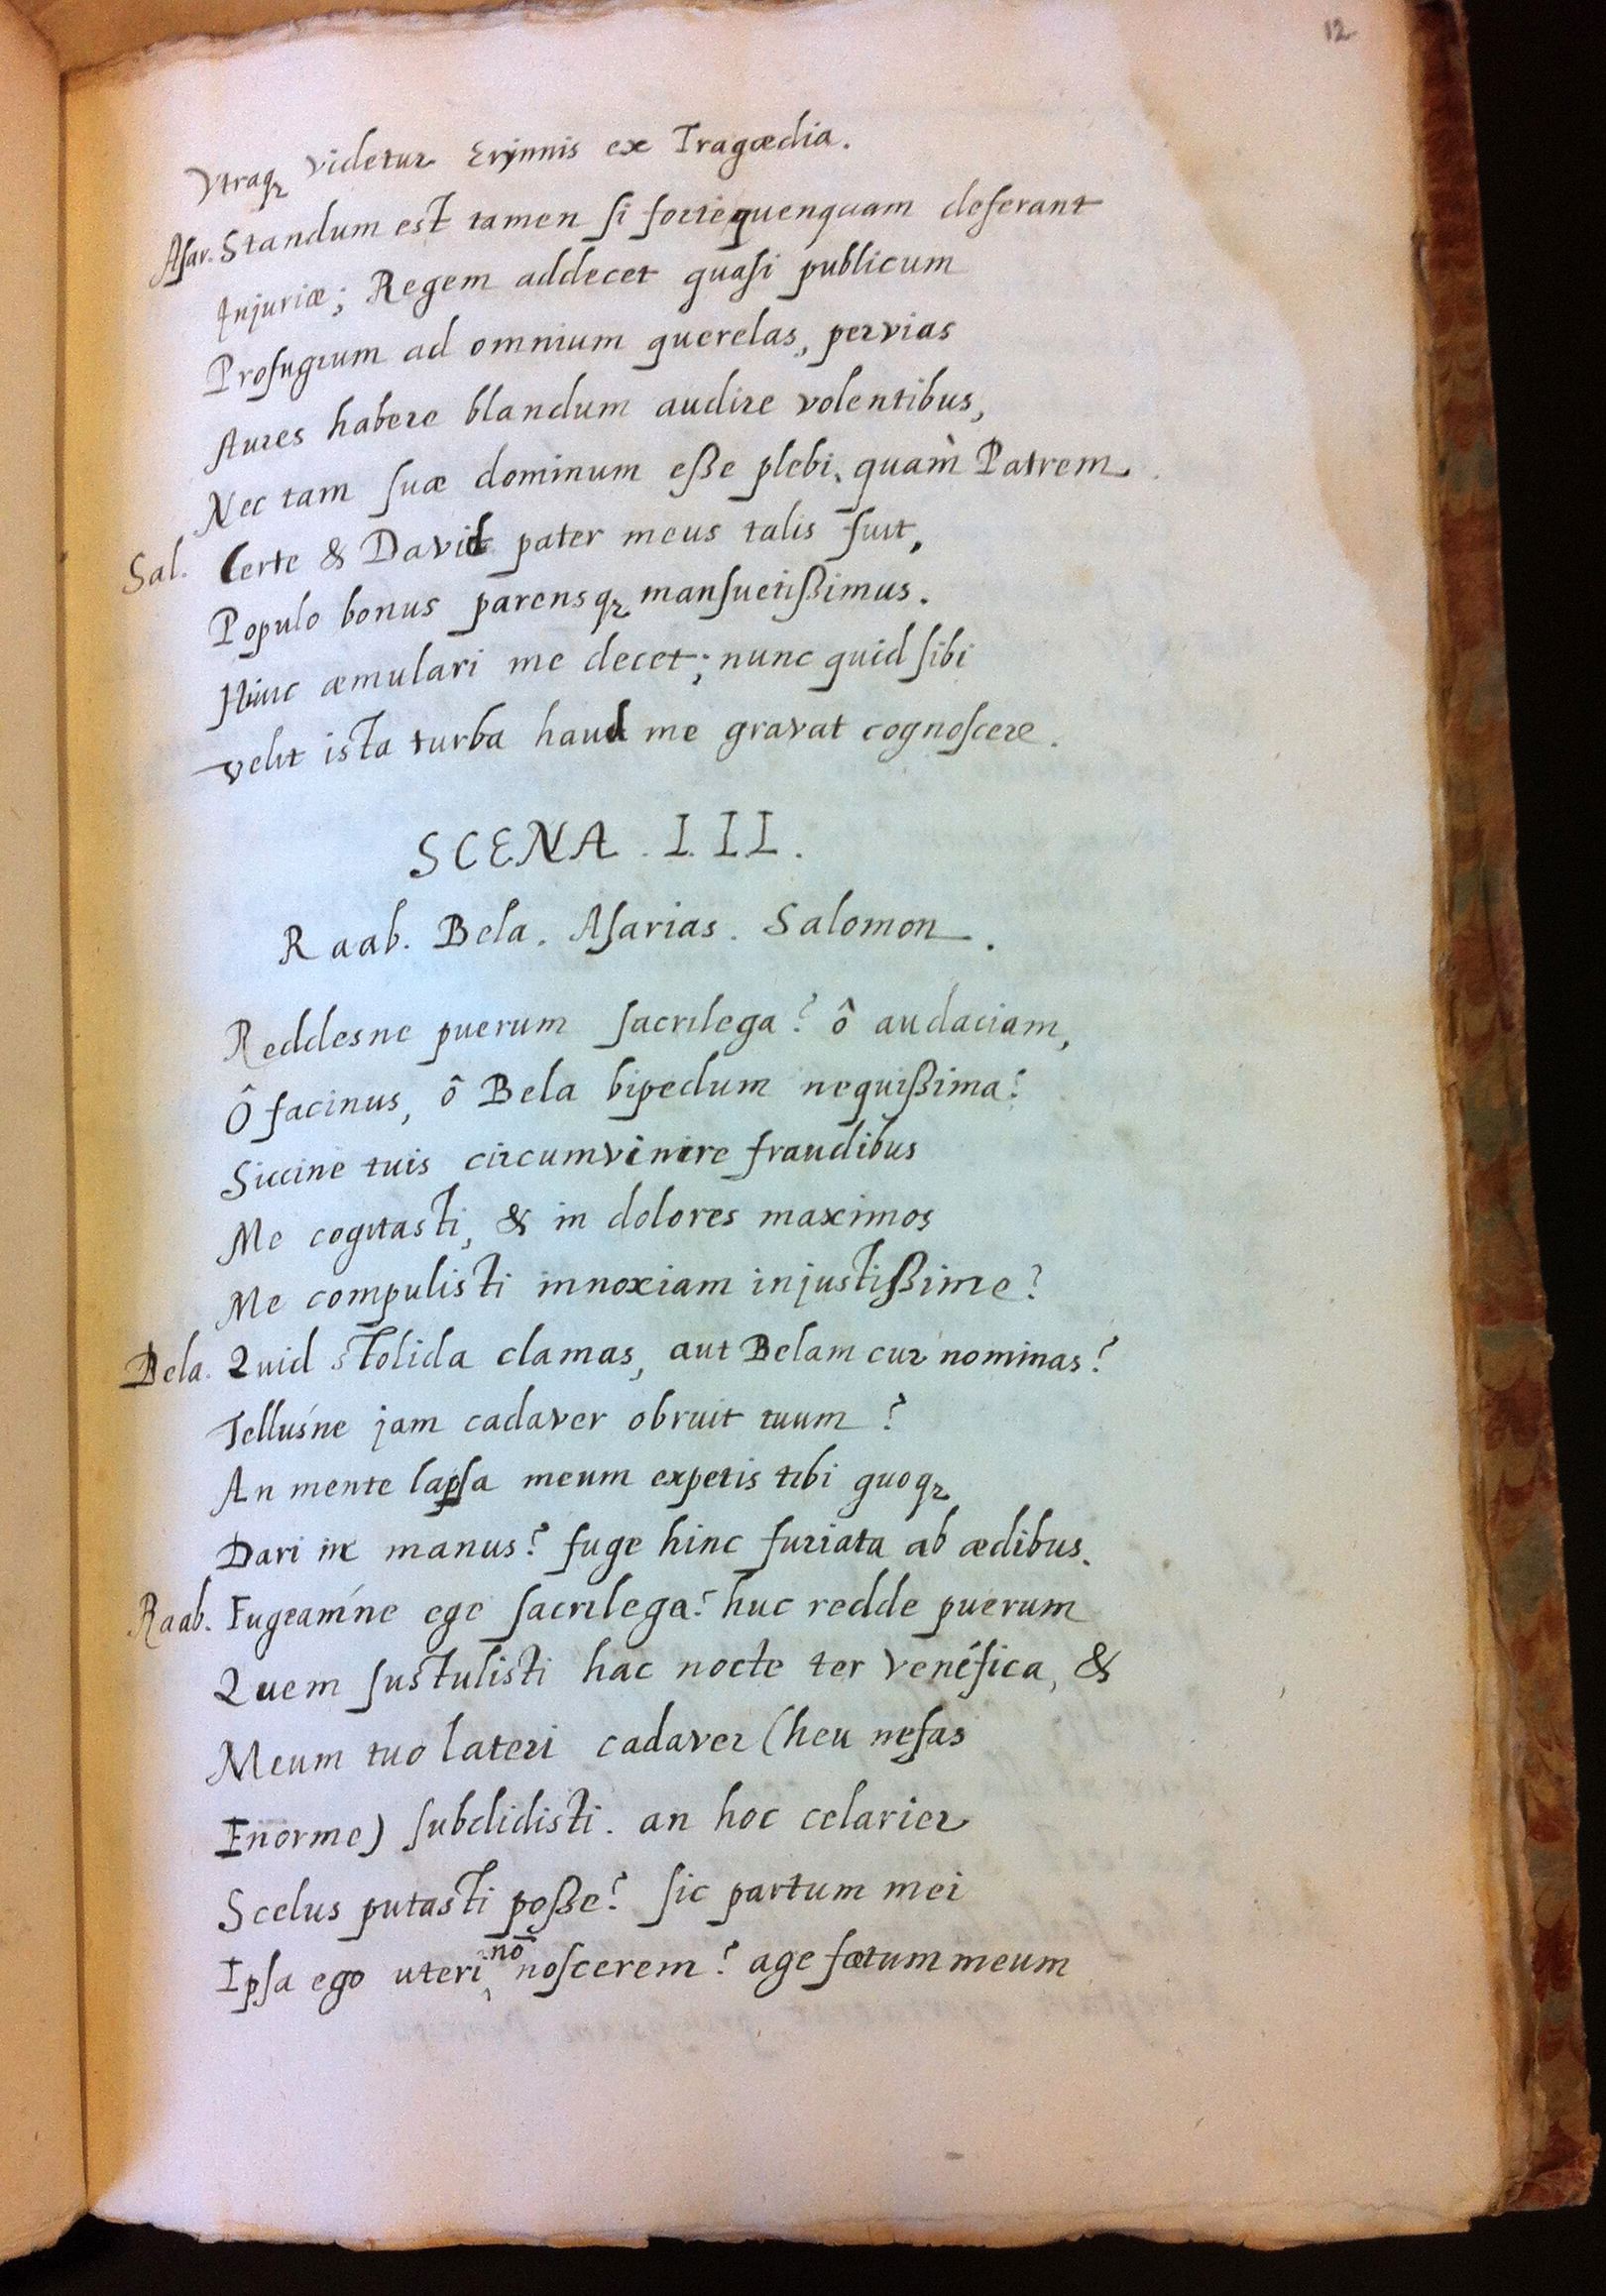 12
Vtraqꝫ videtur Erynnis ex Tragœdia.
Asar. Standum est tamen si forte quenquam deferant
Injuriæ; Regem addecet quasi publicum
Profugium ad omnium querelas, pervias
Aures habere blandum audire volentibus,
Nec tam suæ dominum eße plebi, quàm Patrem.
Sal. Certe & David pater meus talis fuit,
Populo bonus parensqꝫ mansuetißimus.
Hunc æmulari me decet; nunc quid sibi
velit ista turba haud me gravat cognoscere.
SCENA. III.
Raab. Bela. Asarias. Salomon.
Reddesne puerum sacrilega? ô audaciam,
Ô facinus, ô Bela bipedum nequißima!
Siccine tuis circumvenire fraudibus
Me cogitasti, & in dolores maximos
Me compulisti innoxiam injustißime?
Bela. Quid stolida clamas, aut Belam cur nominas?
Tellusne jam cadaver obruit tuum?
An mente lapsa meum expetis tibi quoqꝫ
Dari in manus? fuge hinc furiata ab ædibus.
Raab. Fugeamne ego sacrilega? huc redde puerum
Quem sustulisti hac nocte ter venéfica, &
Meum tuo lateri cadaver (heu nefas
Enorme) subdidisti. an hoc celarier
Scelus putasti poße? sic partum mei
Ipsa ego uteri nō noscerem? age fœtum meum